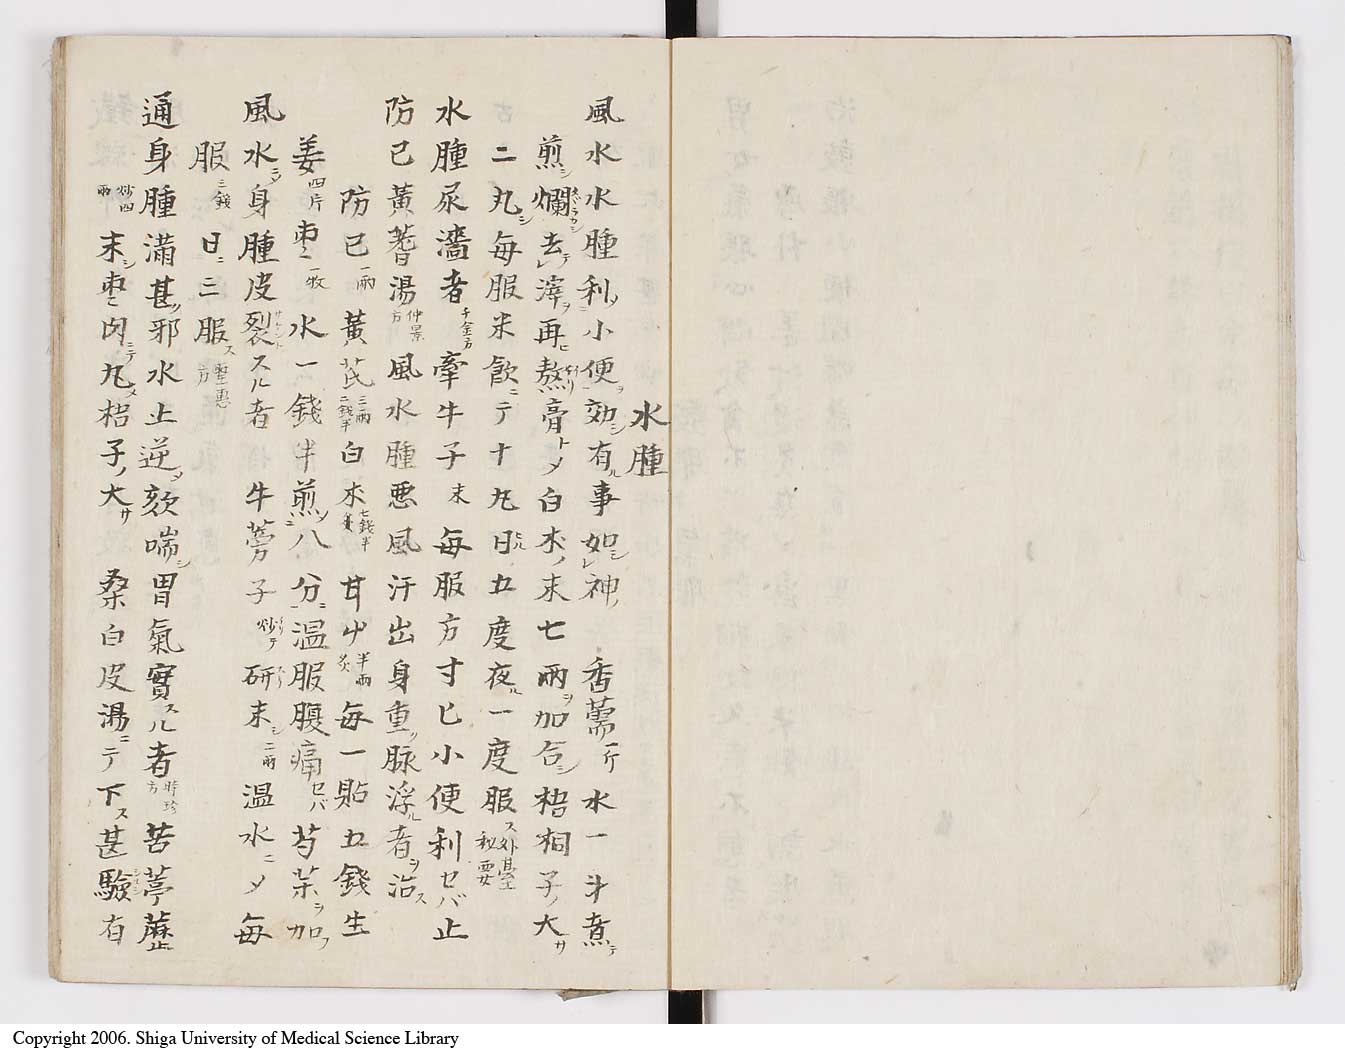 水腫
風水水腫利ノ小便ヲ効シ有ル事如シレ神ノ 香薷一斤水一斗煮テ
煎シ爛カシ去テレ滓ヲ再ヒ熬リ膏トメ白朮ノ末七兩ヲ加合シ梧桐子ノ大サ
二丸シ毎服米飲ニテ十丸日ニ五度夜ル一度服ス外臺秘要
水腫尿濇者千金方牽牛子末毎服方寸匕小便利セバ止
防已黃蓍湯仲景方風水腫悪風汗出身重ク脉浮ル者ヲ治ス
防已一兩黃芪三兩二錢半白朮七錢半甘艸半兩炙毎一貼五錢生
姜四片枣一枚水一錢半煎八分ニ温服腹痛セバ芍藥ヲ加フ
風水ニメ身腫皮裂スル者 牛蒡子炒リテ研リ末シ二兩温水ニメ毎
服三錢日ニ三服ス聖惠方
通身腫満甚ク邪水上逆メ欬喘シ胃氣實スル者時珍方苦葶藶
炒四兩末シ枣肉ニテ丸メ梧子ノ大サ 桑白皮湯ニテ下ス甚驗シルシ有
Copyright 2006. Shiga University of Medical Science Library